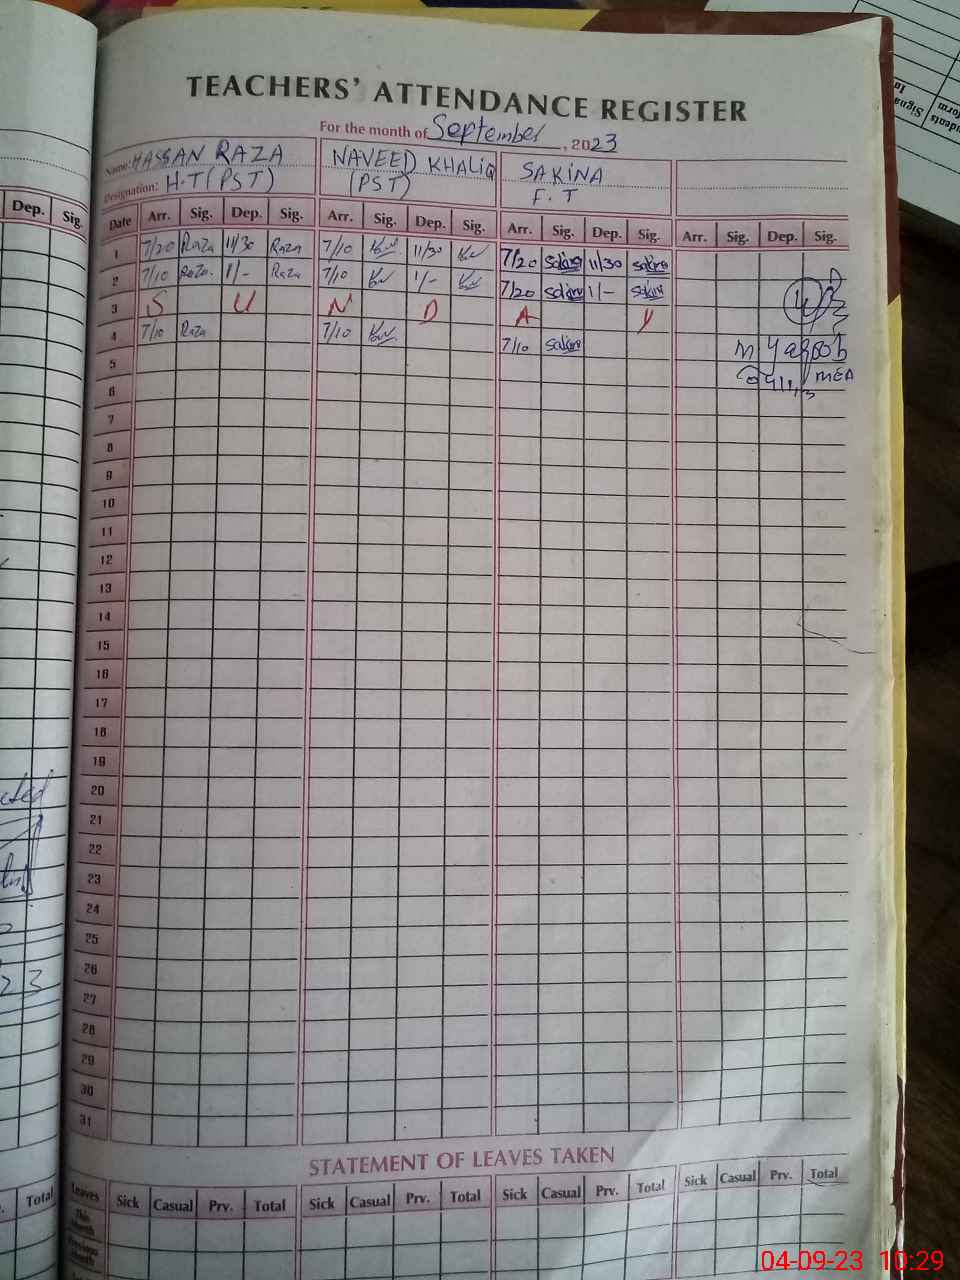 TEACHERS' ATTENDANCE REGISTER
For the month of September, 2023
Name: HASSAN RAZA NAVEED KHALIQ SAKINA
Designation: H.T (PST) (PST) F.T
Date Arr. Sig. Dep. Sig. Arr. Sig. Dep. Sig. Arr. Sig. Dep. Sig. Arr. Sig. Dep. Sig.
1 7/20 Raza 11/30 Raza 7/10 11/30 7/20 Sakina 11/30 Sakina
2 7/10 Raza 1/- Raza 7/10 1/- 7/20 Sakina 1/- Sakina
3 S U N D A Y
4 7/10 Raza 7/10 7/10 Sakina
M Yaqoob
5
MEA
6
7
8
9
10
11
12
13
14
15
16
17
18
19
20
21
22
23
24
25
26
27
28
29
30
31
STATEMENT OF LEAVES TAKEN
Leaves Sick Casual Prv. Total Sick Casual Prv. Total Sick Casual Prv. Total Sick Casual Prv. Total
This Month
Previous Month
Dep. Sig.
23
Total
04-09-23 10:29